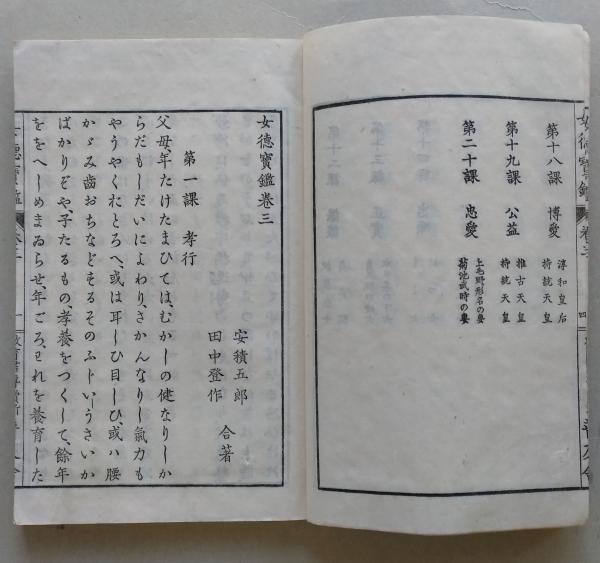 第十八課　博愛　淳和皇后
持統天皇
第十九課　公益　推古天皇
持統天皇
第二十課　忠愛　上毛野形名の妻
菊池武時の妻
女德寶鑑卷三
安積五郎
田中登作　合著
第一課　孝行
父母、年たけたまひては、むかしの健なりしか
らだもしだいによわり、さかんなりし氣力も
やうやくおとろへ、或は耳しひ目しひ、或ハ腰
かゞみ齒おちなどするそのふじいうさいか
ばかりぞや、子たるもの、孝養をつくして、餘年
ををへしめまゐらせ、年ごろ、われを養育した